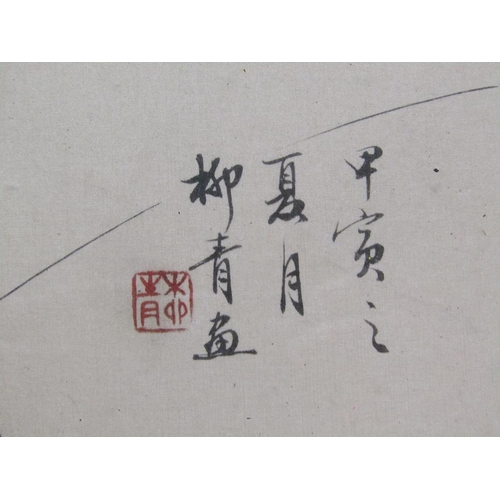 甲寅之
夏月
柳青画
柳青